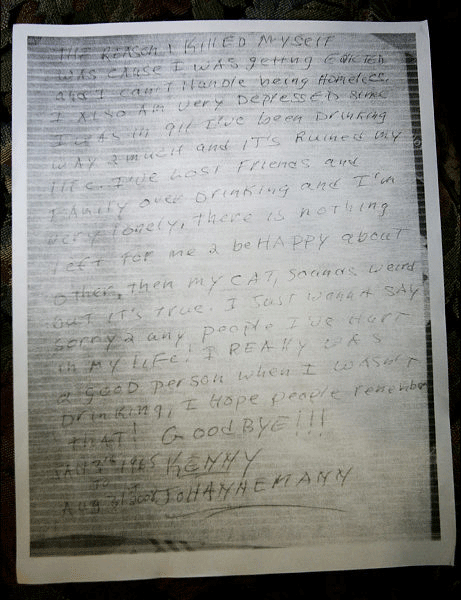 THE REASON I KILLED MYSELF
WAS CAUSE I WAS getting EVICTED
and I can't Handle being Homeless.
I Also Am Very DEPRESSED since
I WAS in I've been Drinking
WAY 2 much and IT'S RUINED MY
LIFE. I've LOST FRIENDS and
FAMILY over DRINKING and I'm
very lonely, there is nothing
left for me 2 be HAPPY about
other, then my CAT, Sounds Weird
but it's true. I Just WANNA SAY
Sorry 2 any people I've HURT
in My LIFE! I REALLY WAS
a good person when I WASN'T
Drinking, I Hope people remember
that! GOODBYE!!!
1965 KENNY
TO
AUG 31 JOHANNEMANN